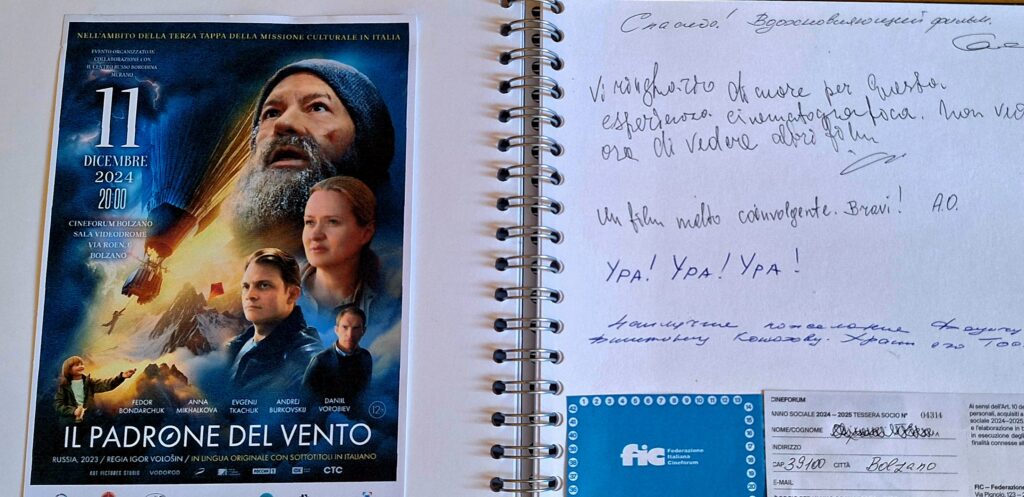 NELL'AMBITO DELLA TERZA TAPPA DELLA MISSIONE CULTURALE IN ITALIA
EVENTO ORGANIZZATO IN
COLLABORAZIONE CON
IL CENTRO RUSSO BORODINA
MERANO
11
DICEMBRE
2024
20:00
CINEFORUM BOLZANO
SALA VIDEODROME
VIA ROEN, 6
BOLZANO
FEDOR BONDARCHUK
ANNA MIKHALKOVA
EVGENIJ TKACHUK
ANDREJ BURKOVSKIJ
DANIIL VOROBIEV
12+
IL PADRONE DEL VENTO
RUSSIA, 2023 / REGIA IGOR VOLOŠIN / IN LINGUA ORIGINALE CON SOTTOTITOLI IN ITALIANO
ART PICTURES STUDIO VODOROD СТС
Спасибо! Вдохновляющий фильм.
Vi ringrazio di more per questa
esperienza cinematografica. Non ved
ora di vedere altri film
Un film molto coinvolgente. Bravi! A.O.
УРА! УРА! УРА!
Наилучшие пожелание
Конюхову. Храни его
fic Federazione
Italiana
Cineforum
CINEFORUM
ANNO SOCIALE 2024 – 2025 TESSERA SOCIO N° 04314
NOME/COGNOME
INDIRIZZO
CAP 39100 CITTÀ Bolzano
E-MAIL
Ai sensi dell'Art. 10 de
personali, acquisiti
sociale 2024–2025
e l'elaborazione in
in esecuzione degli
finalità connesse
FIC – Federazione
Via Pignolo, 123